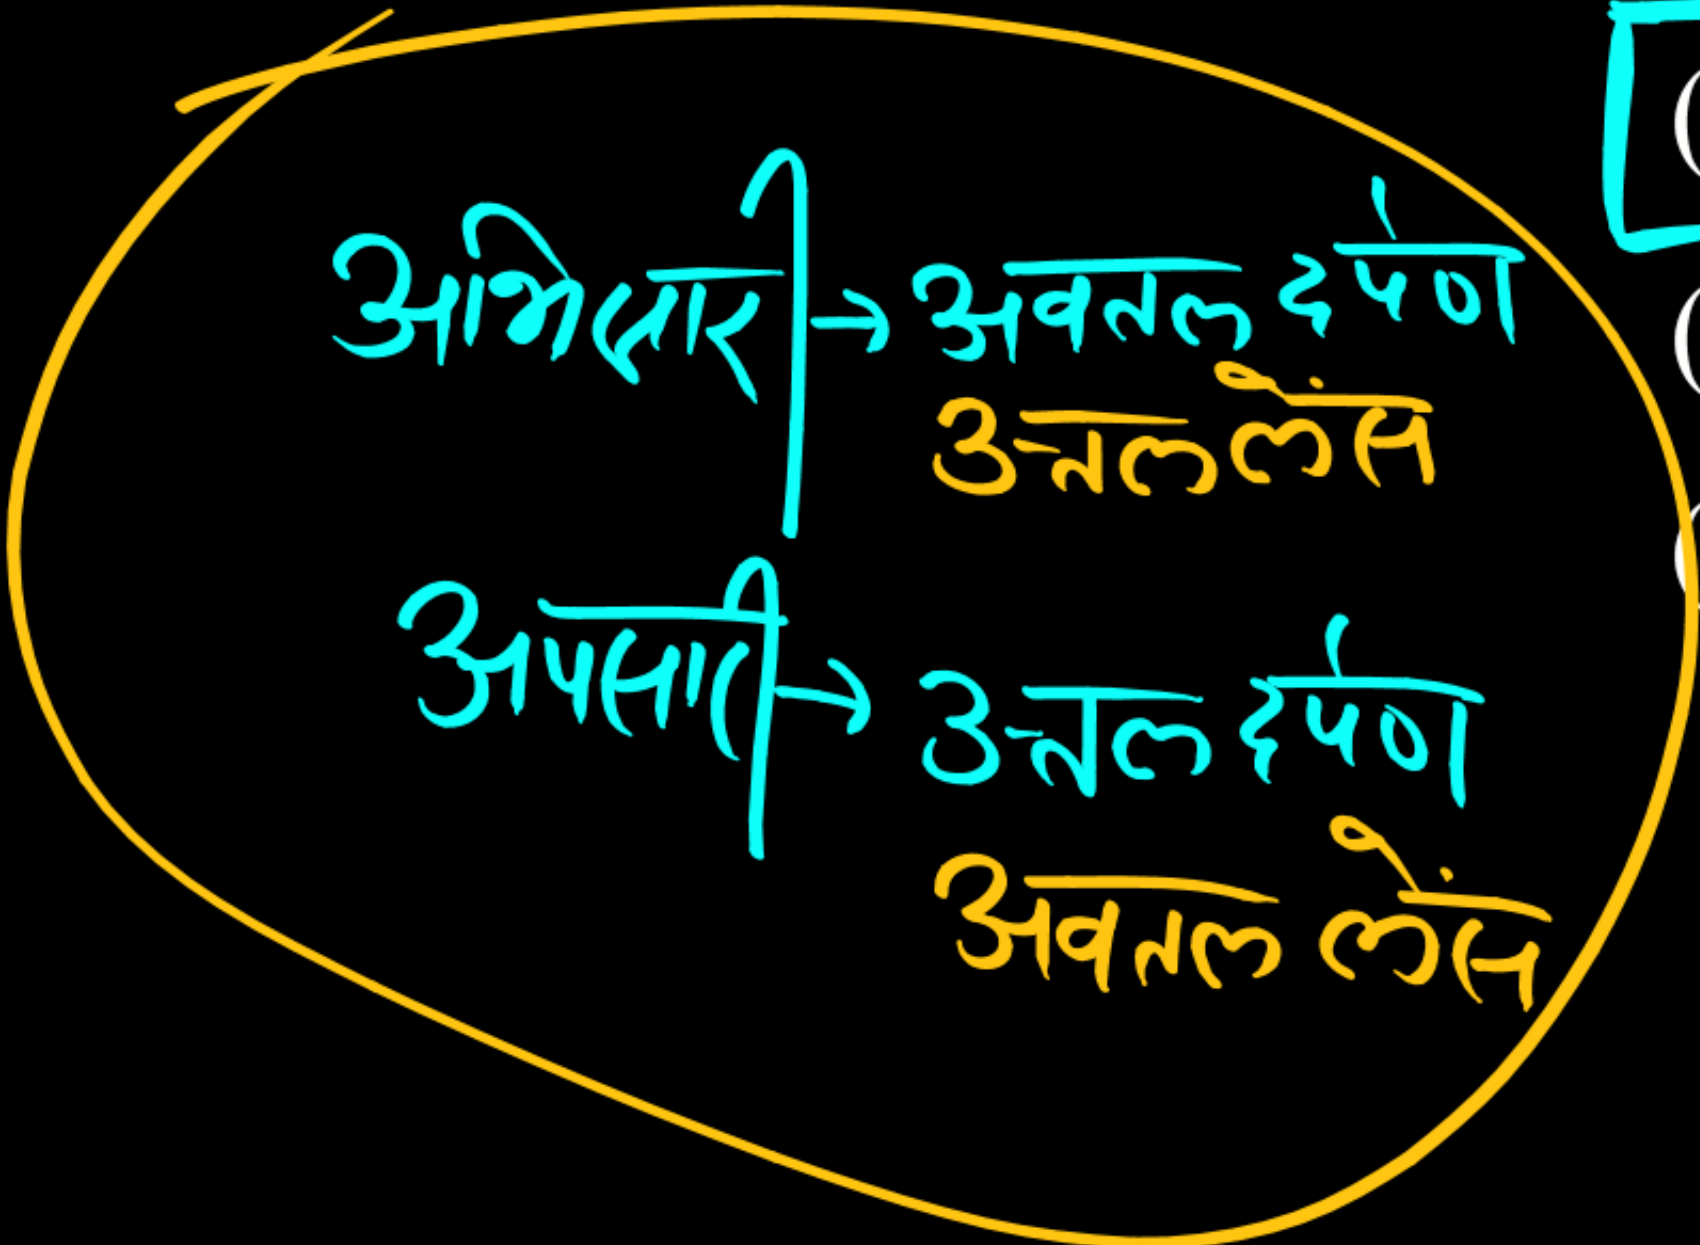 अभिसारी → अवतल दर्पण
उत्तल लेंस
अपसारी → उत्तल दर्पण
अवतल लेंस